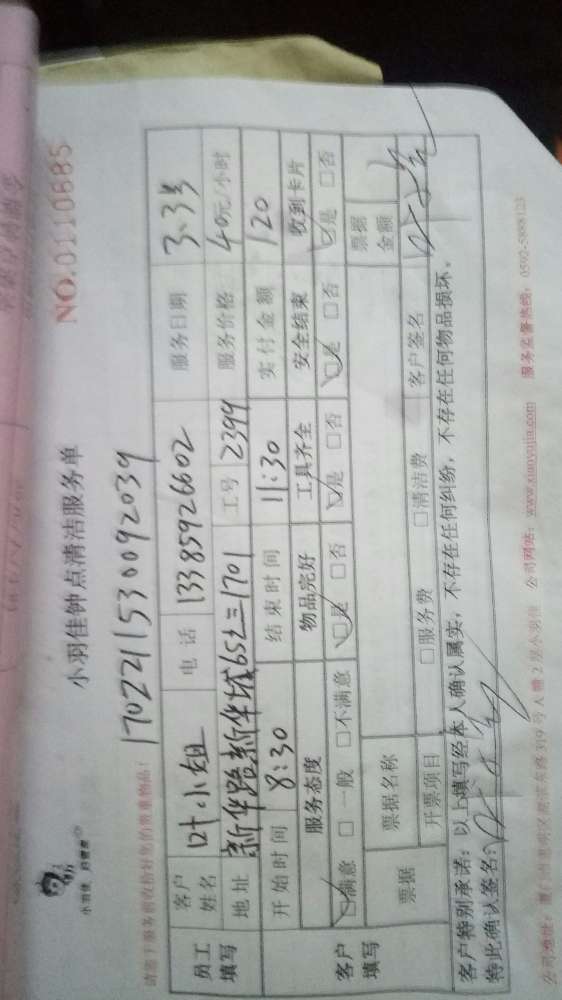 小羽佳钟点清洁服务单
NO.0110885
小羽佳 好管家
1702211530092039
员工填写 客户姓名 叶小姐 电话 13385926602 服务日期 3.3号
地址 新华路新华城65之三1701 工号 2399 服务价格 40元/小时
开始时间 8:30 结束时间 11:30 实付金额 120
客户填写 服务态度 物品完好 工具齐全 安全结束 收到卡片
☑满意 □一般 □不满意 ☑是 □否 ☑是 □否 ☑是 □否 ☑是 □否
票据 票据名称 票据金额
开票项目 □服务费 □清洁费 客户签名
客户特别承诺:以上填写经本人确认属实,不存在任何纠纷,不存在任何物品损坏。
特此确认签名:
公司网站:www.xiaoyujia.com 服务监督热线:0592-5888123